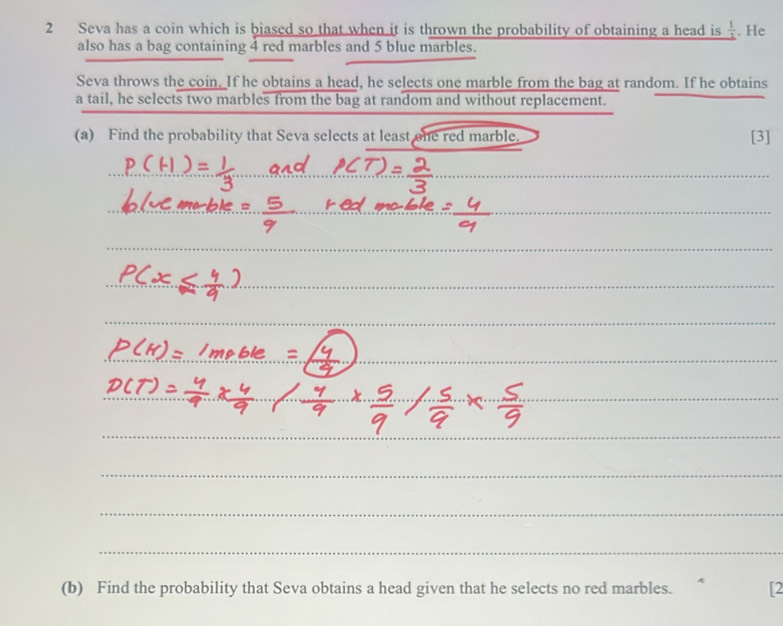 2 Seva has a coin which is biased so that when it is thrown the probability of obtaining a head is 1/3. He
also has a bag containing 4 red marbles and 5 blue marbles.
Seva throws the coin. If he obtains a head, he selects one marble from the bag at random. If he obtains
a tail, he selects two marbles from the bag at random and without replacement.
(a) Find the probability that Seva selects at least one red marble. [3]
P(H) = 1/3 and P(T) = 2/3
blue marble = 5/9 red marble = 4/9
P(x ≤ 4/9)
P(H) = 1 marble = 4/9
P(T) = 4/9 × 4/9 / 4/9 × 5/9 / 5/9 × 5/9
(b) Find the probability that Seva obtains a head given that he selects no red marbles. [2